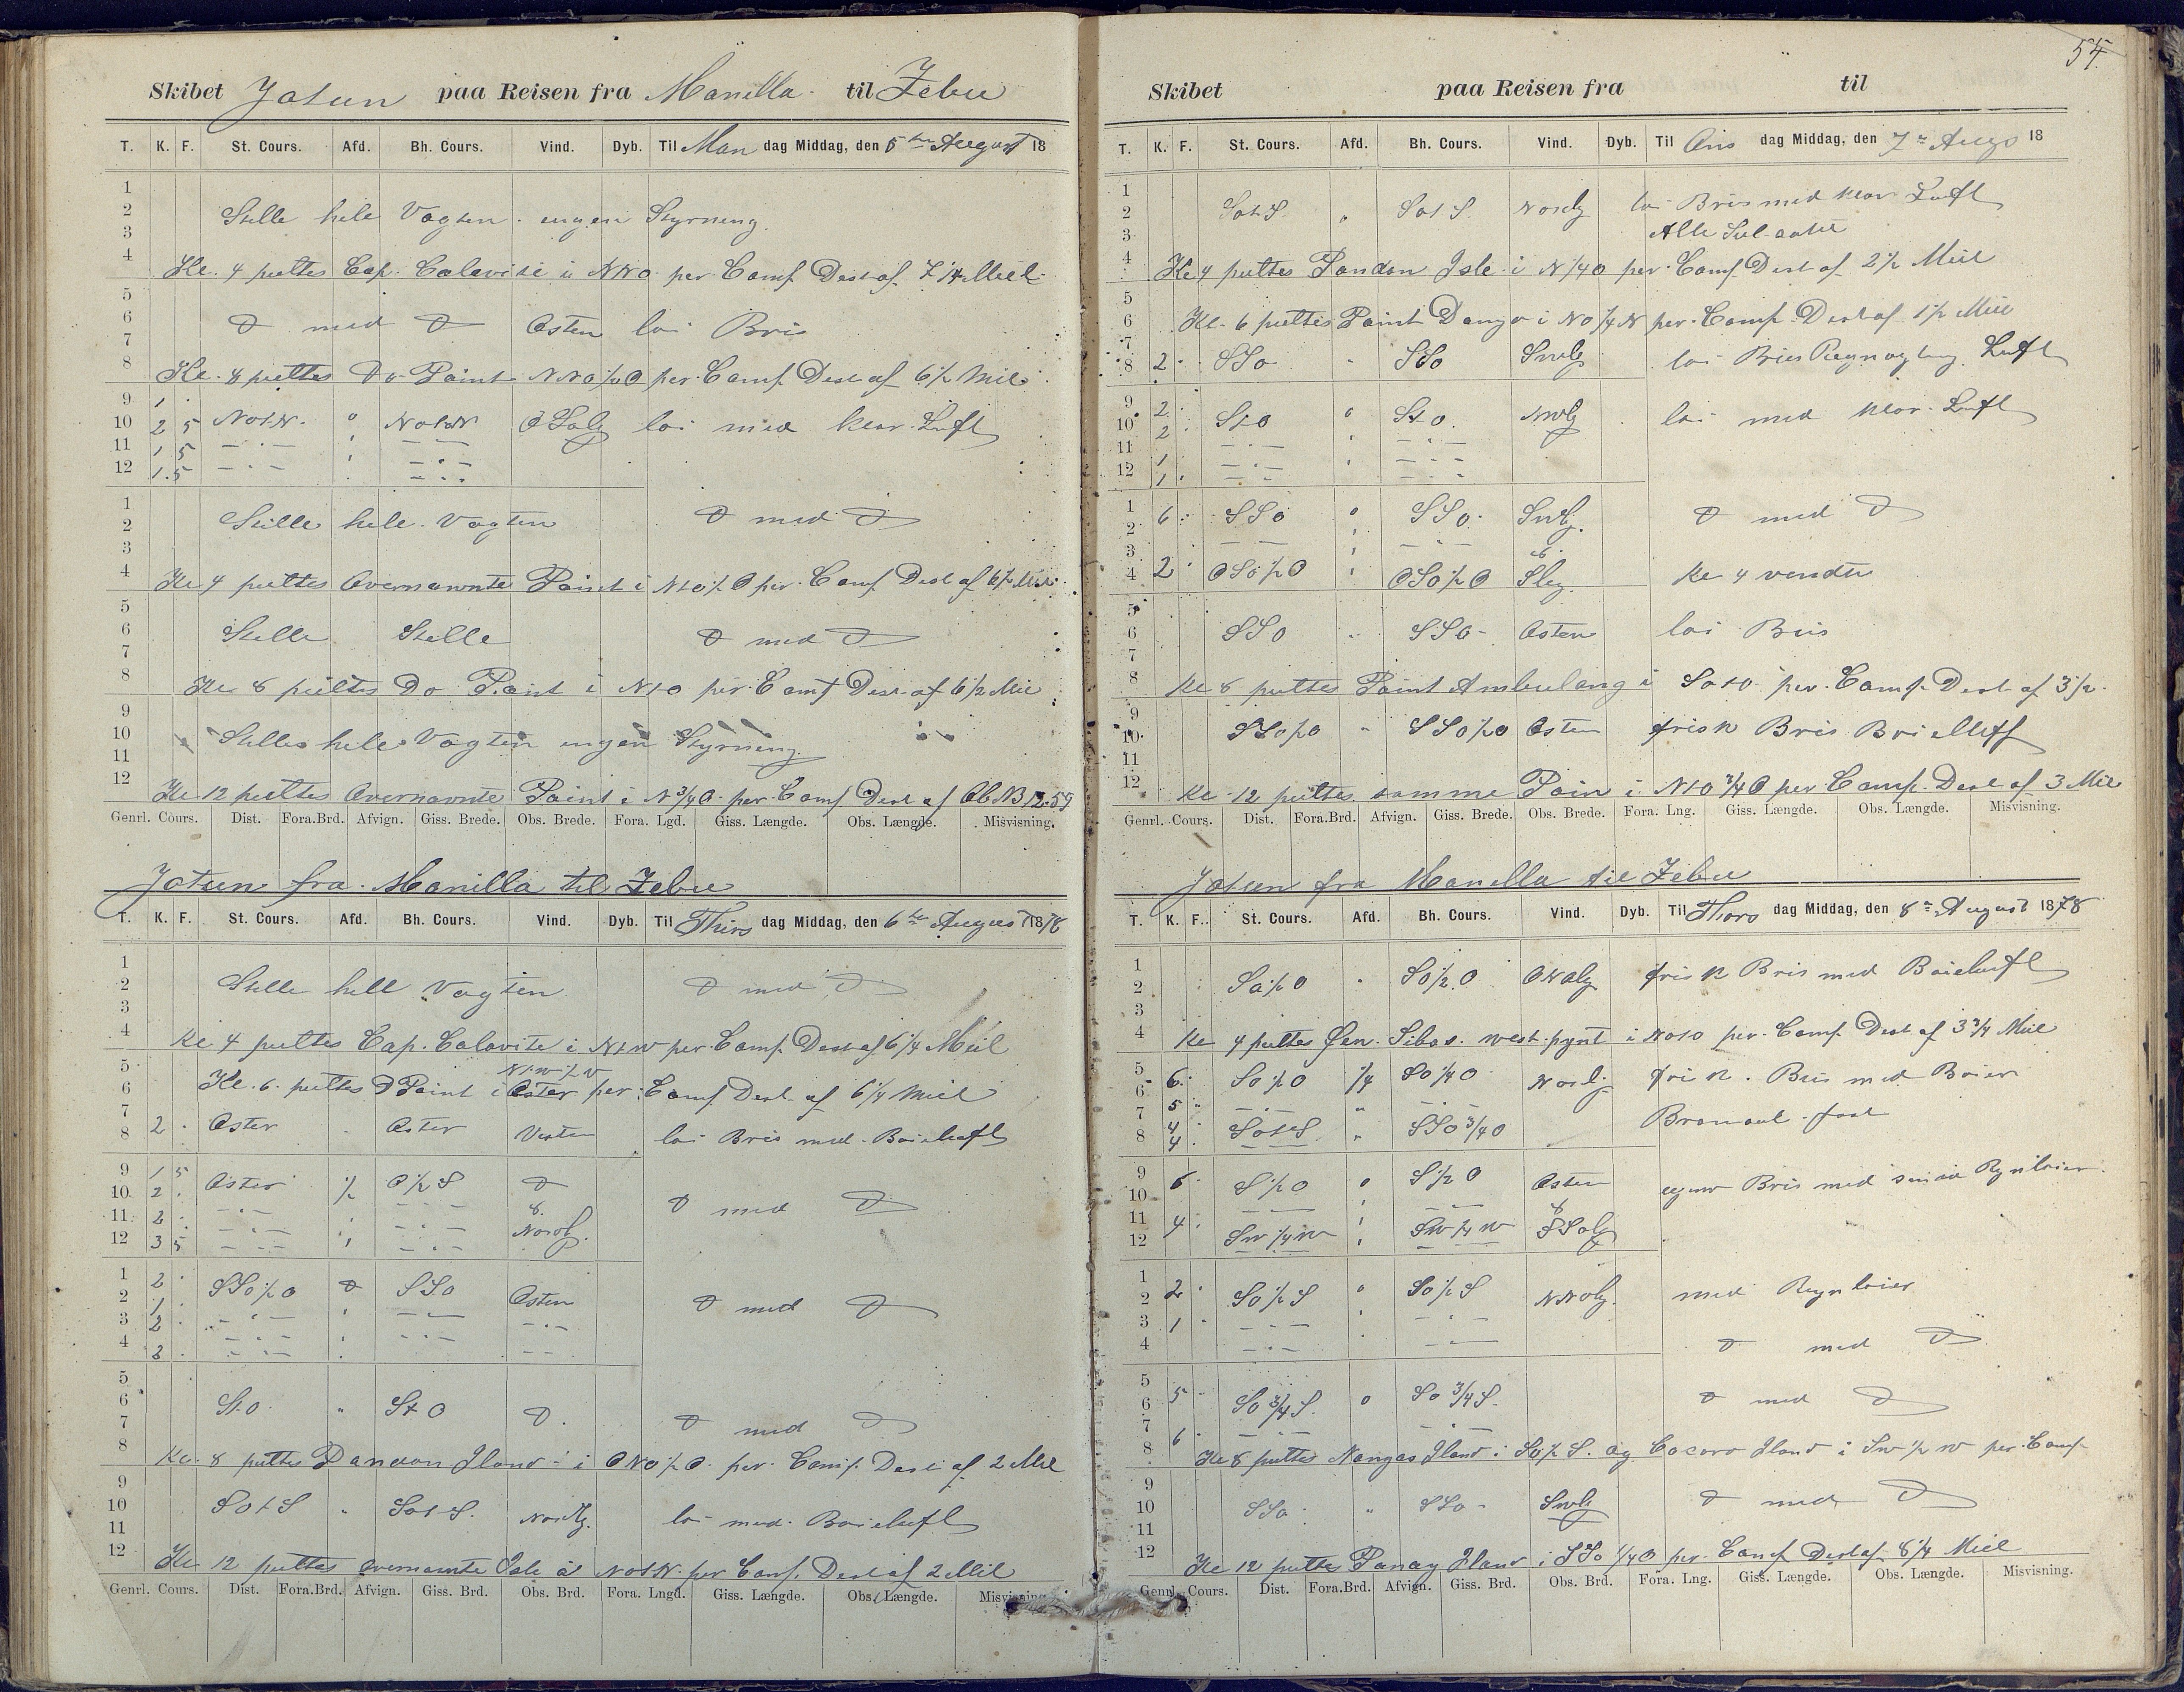 54
Skibet Jotun paa Reisen fra Manilla til Zebu
T. K. F. St. Cours. Afd. Bh. Cours. Vind. Dyb. Til Man dag Middag, den 5te August 18
1
2 Stille hele Vagten ingen Styrning
3
4 Kl. 4 peiltes Cap. Calavite i NNO per. Comp Dest af 7 1/4 Miil
5
6 D med D Osten loi Bris
7
8 Kl. 8 peiltes Do Point NNO 1/2 O per. Comp Dest af 6 1/2 Mil
9 1
10 2 5 NotN. " NotN OSolg loi med klar Luft
11 1 5 — " — " — " —
12 1.5 — " — — " —
1
2 Stille hele Vagten D med D
3
4 Kl 4 peiltes Overnævnte Point i NtO 1/2 O per. Comp Dest af 6 1/2 Mil
5
6 Stille Stille D med D
7
8 Kl 8 peiltes Do Point i NtO per. Comp Dest af 6 1/2 Mil
9
10 Stille hele Vagten ingen Styrning
11
12 Kl 12 peiltes Overnævnte Point i N 3/4 O per. Comp Dest af Ob. B 12.59
Genrl. Cours. Dist. Fora.Brd. Afvign. Giss. Brede. Obs. Brede. Fora. Lgd. Giss. Længde. Obs. Længde. Misvisning.
Jotun fra Manilla til Zebu
T. K. F. St. Cours. Afd. Bh. Cours. Vind. Dyb. Til Thirs dag Middag, den 6te August 1878
1
2 Stille hele Vagten D med D
3
4 Kl 4 peiltes Cap. Calavite i NtW per. Comp Dest af 6 1/4 Miil
5 NtW 1/2 W
6 Kl. 6 peiltes D Point i Oster per. Comp Dest. af 6 1/4 Miil
7
8 2 Oster Oster Vesten loi Bris med Boieluft
9 1 5 Oster 1/2 O 1/2 S D
10 2 — " — " — " — D med D
11 2 — " — " — " — &
12 3 5 — " — " — " — Nordl.
1 2 SSO 1/2 O D SSO Osten
2 1 — " — " — " — D med D
3 2 — " — " — " — — " —
4 3 — " —
5
6 StO " StO D. D med D
7
8 Kl. 8 peiltes Pandan Iland i ONO 1/2 O per. Comp. Dest af 2 Mil
9
10 SOtS " SOtS. Nordlg. loi med Boieluft
11
12 Kl 12 peiltes overnamte Isle i NOtN per Comp. Dest af 2 Mil
Genrl. Cours. Dist. Fora.Brd. Afvign. Giss. Brd. Obs. Brd. Fora. Lngd. Giss. Længde. Obs. Længde. Misvisning
Skibet paa Reisen fra til
T. K. F. St. Cours. Afd. Bh. Cours. Vind. Dyb. Til Ons dag Middag, den 7de Aug 18
1
2 SotS. " SotS. Nordlg loi Bris med klar Luft
3 Alle Seil
4 Kl 4 peiltes Pandan Isle i N 1/4 O per. Comp Dest af 2 1/2 Miil
5
6 Kl. 6 peiltes Point Dongo i NO 1/4 N per. Comp. Dest af 1 1/2 Miil
7
8 2 SSO " SSO Swlg loi Bris Luft
9 2 StO " StO. NWlg loi med klar Luft
10 2 — " — " — " —
11 1 — " — " — " —
12 1
1 6 SSO " SSO Swlg. D med D
2 — — — " —
3 &
4 2 OSO 1/2 O " OSO 1/2 O Slig. Kl 4 vendte
5
6 SSO " SSO Osten loi Bris
7
8 Kl 8 peiltes Point Ambulong i SotO per. Comp. Dest af 3 1/2
9
10 SSO 1/2 O " SSO 1/2 O Osten frisk Bris
11
12 Kl. 12 peiltes samme Poin i NtO 3/4 O per Comp. Dest af 3 Mil
Genrl. Cours. Dist. Fora.Brd. Afvign. Giss. Brede. Obs. Brede. Fora. Lng. Giss. Længde. Obs. Længde. Misvisning.
Jotun fra Manilla til Zebu
T. K. F. St. Cours. Afd. Bh. Cours. Vind. Dyb. Til Thors dag Middag, den 8de August 1878
1
2 SO 1/2 O " SO 1/2 O frisk Bris med Boieluft
3
4 Kl 4 peiltes Øen Sibas. west pynt i NotO per. Comp Dest af 3 3/4 Miil
5 6 SO 1/2 O 1/4 SO 1/4 O Nordl. frisk Bris med Boier
6 5 — " — " — " —
7 4 Bramseil fast
8 4 SotS " SSO 3/4 O
9 6 S 1/2 O " S 1/2 O Osten Bris med
10 — — — —
11 4 &
12 SW 1/4 W " SW 1/4 W SSolg
1 2 SO 1/2 S " SO 1/2 S NNolg. med Regnboier
2
3 1 — " — " — " —
4 — " — " — " — D med D
5 5 SO 3/4 S " SO 3/4 S. D med D
6
7 6 — " — — " —
8 Kl 8 peiltes Nangas Iland i SO 1/2 S. og Cocoro Iland i SW 1/2 W per. Comp
9
10 SSO " SSO Swlg D med D
11
12 Kl 12 peiltes Panay Iland i SSO 1/4 O per. Comp Dest af 8 1/4 Miil
Genrl. Cours. Dist. Fora.Brd. Afvign. Giss. Brd. Obs. Brd. Fora. Lng. Giss. Længde. Obs. Længde. Misvisning.